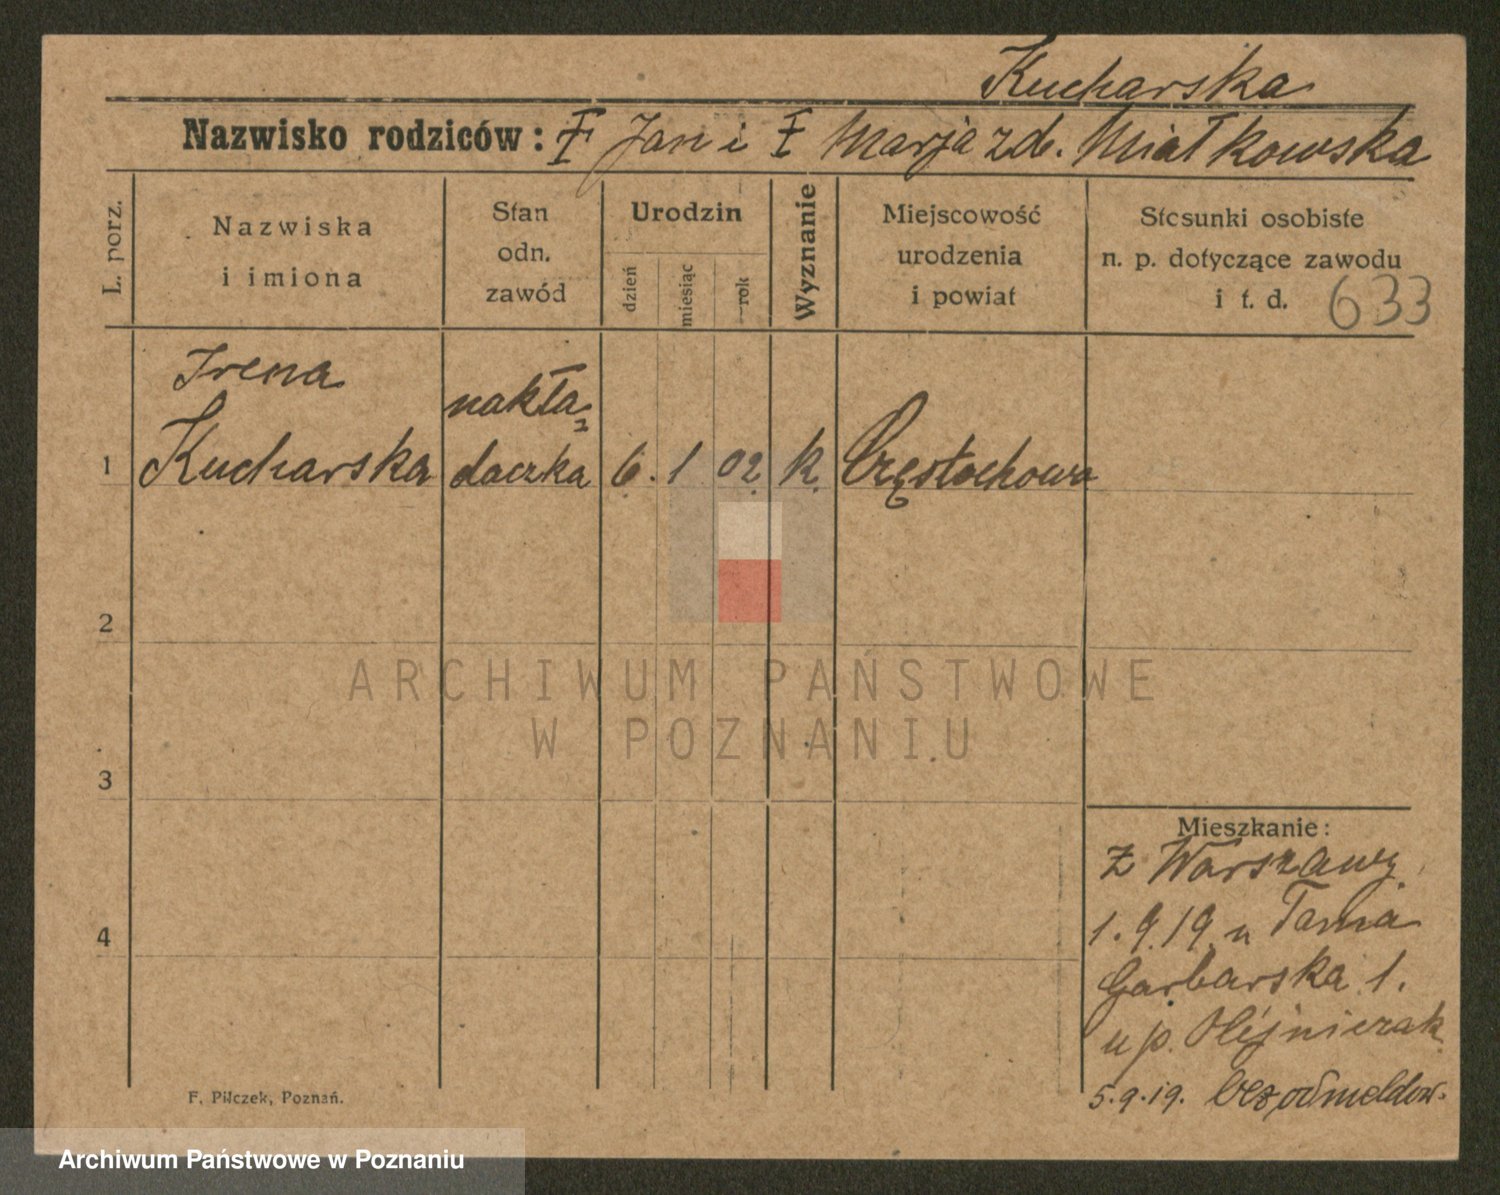 Kucharska
Nazwisko rodziców: Jan i Marja zd. Miałkowska
L. porz.
Nazwiska
i imiona
Stan
odn.
zawód
Urodzin
dzień
miesiąc
rok
Wyznanie
Miejscowość
urodzenia
i powiat
Stosunki osobiste
n. p. dotyczące zawodu
i t. d.
633
Irena
Kucharska
nakła-
daczka
6. 1 02
k.
Częstochowa
1
2
3
4
Mieszkanie:
Z Warszawy
1.9.19 u Tama
Garbarska 1.
u p. Olejniczak
5.9.19. bez odmeldow.
F. Pilczek, Poznań.
ARCHIWUM PAŃSTWOWE
W POZNANIU
Archiwum Państwowe w Poznaniu